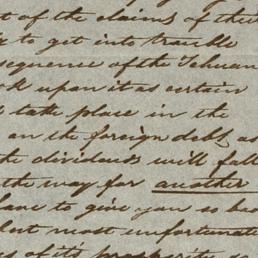 t of the claims of their
to get into trouble
sequence of the Tehuan
ok upon it as certain
take place in the
on the foreign debt, as
the dividends will fall
the way for another
have to give you so bad
but most unfortunate
of it's prosperity so